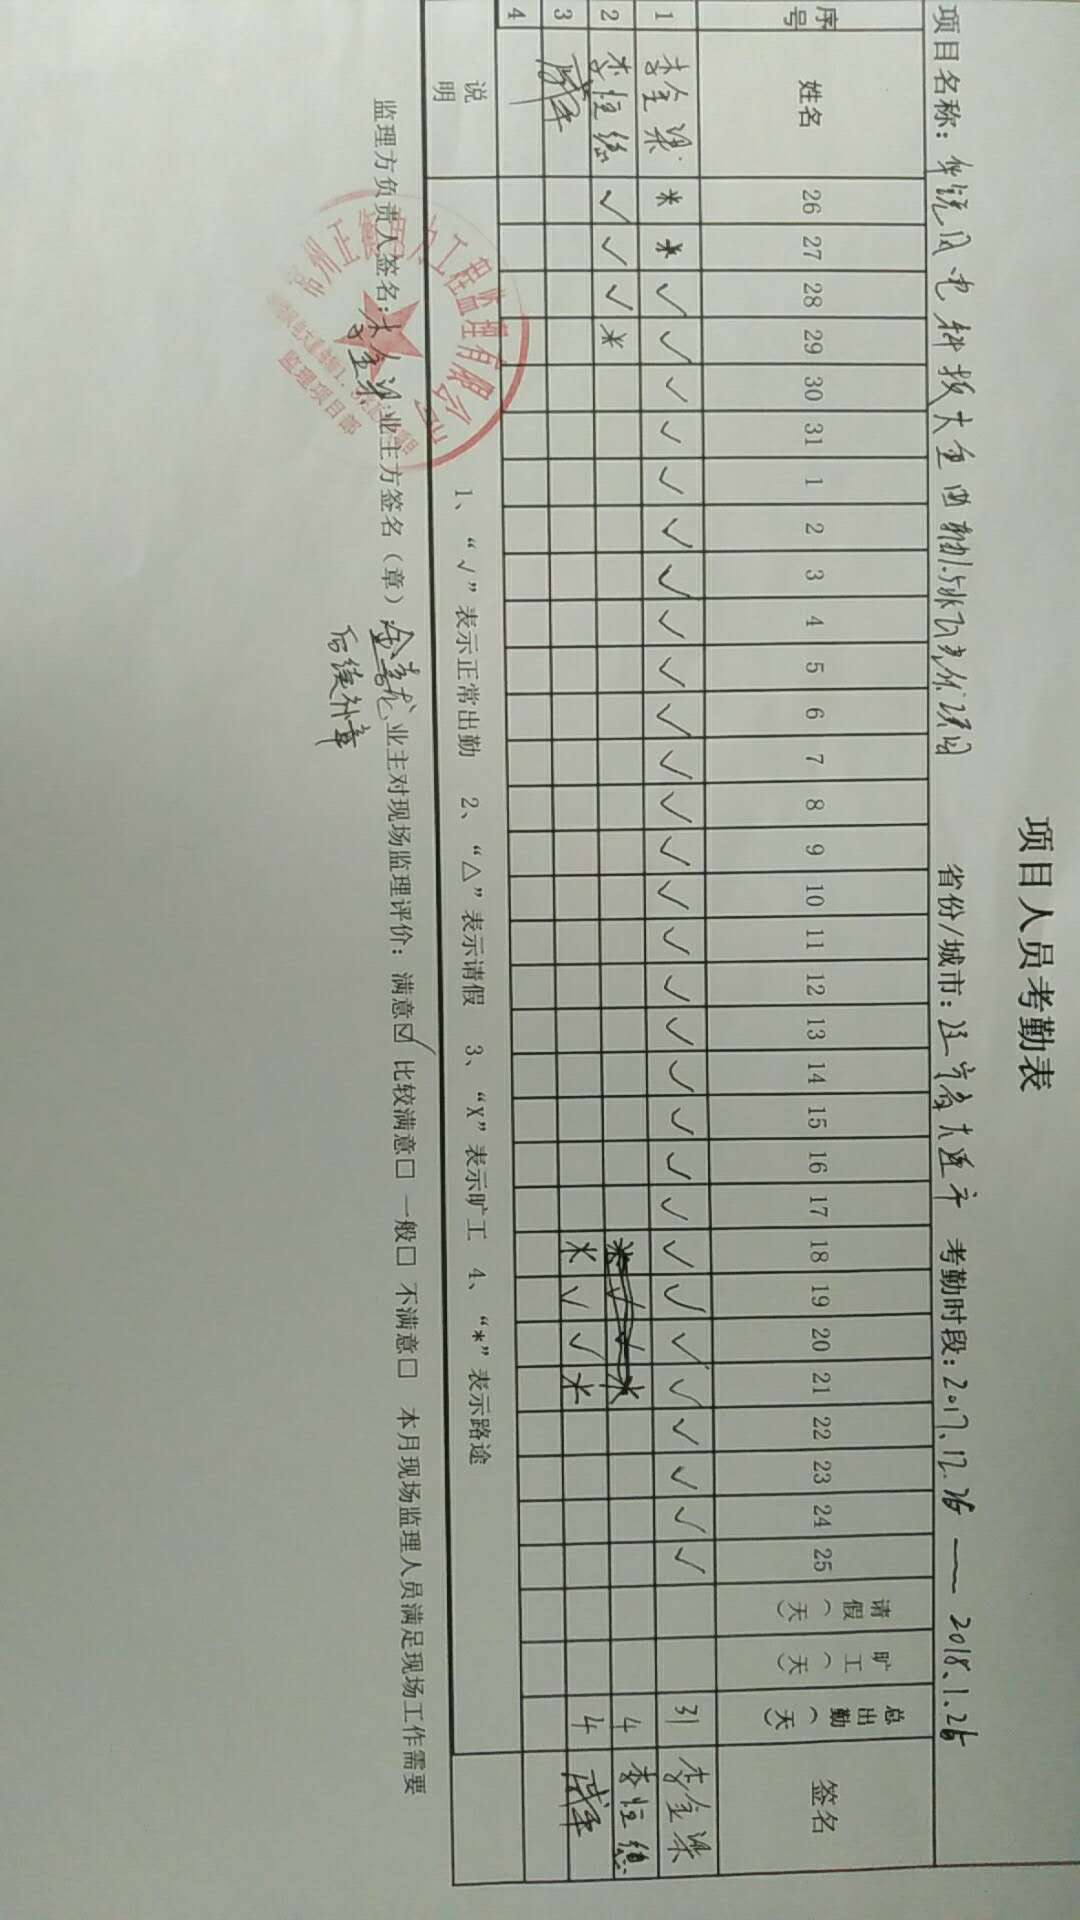 项目人员考勤表
项目名称： 省份/城市：辽宁省大连市 考勤时段：2017.12.26 — 2018.1.25
序号 姓名 26 27 28 29 30 31 1 2 3 4 5 6 7 8 9 10 11 12 13 14 15 16 17 18 19 20 21 22 23 24 25 请假（天） 旷工（天） 总出勤（天） 签名
1 李金梁 * * √ √ √ √ √ √ √ √ √ √ √ √ √ √ √ √ √ √ √ √ √ √ √ √ √ √ √ √ √ 31 李金梁
2 李恒德 √ √ √ * 4 李恒德
3 * √ √ * 4
4
说明 1、“√”表示正常出勤 2、“△”表示请假 3、“X”表示旷工 4、“*”表示路途
监理方负责人签名：李金梁 业主方签名（章）： 业主对现场监理评价：满意☑ 比较满意□ 一般□ 不满意□ 本月现场监理人员满足现场工作需要
后续补章
监理项目部